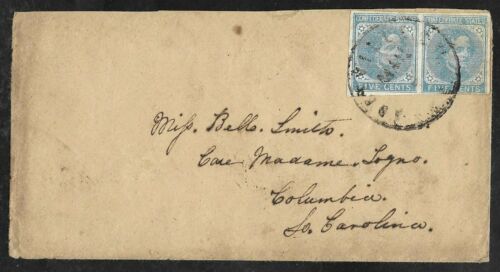 CONFEDERATE STATES CONFEDERATE STATES
FIVE CENTS FIVE CENTS
Miss Belle Smith.
Care Madame Sogno.
Columbia.
So. Carolina.